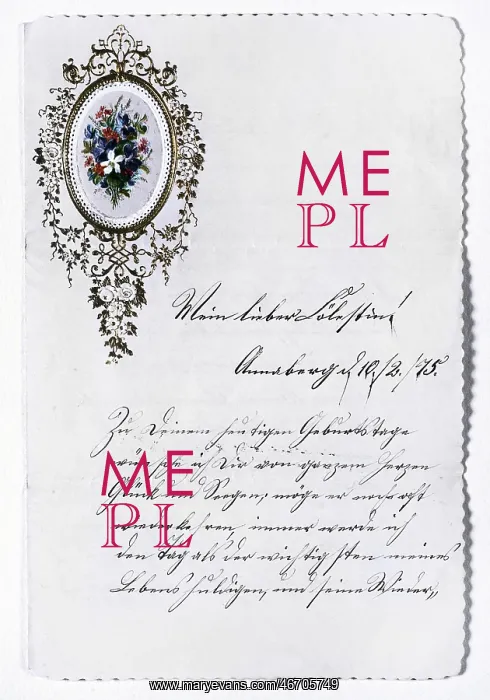 ME
PL
Mein lieber Cölestin!
Annaberg d. 10./2./75.
Zu Deinem heutigen Geburtstage
wünsche ich Dir von ganzem Herzen
Glück und Seegen; möge er noch oft
wiederkehren, immer werde ich
den Tag als der wichtigsten meines
Lebens huldigen, und seine Wieder„
ME
PL
www.maryevans.com/46705749